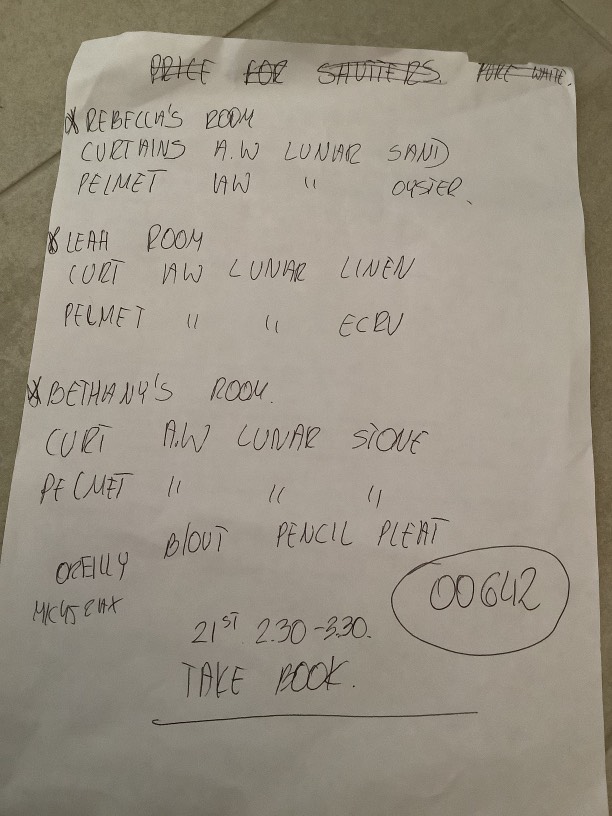 PRICE FOR SHUTTERS. PURE WHITE.
REBECCA'S ROOM
CURTAINS A.W LUNAR SAND
PELMET AW " OYSTER.
LEAH ROOM
CURT AW LUNAR LINEN
PELMET " " ECRU
BETHANY'S ROOM.
CURT A.W LUNAR STONE
PELMET " " "
B/OUT PENCIL PLEAT
OREILLY
00642
21ST 2.30-3.30.
TAKE BOOK.